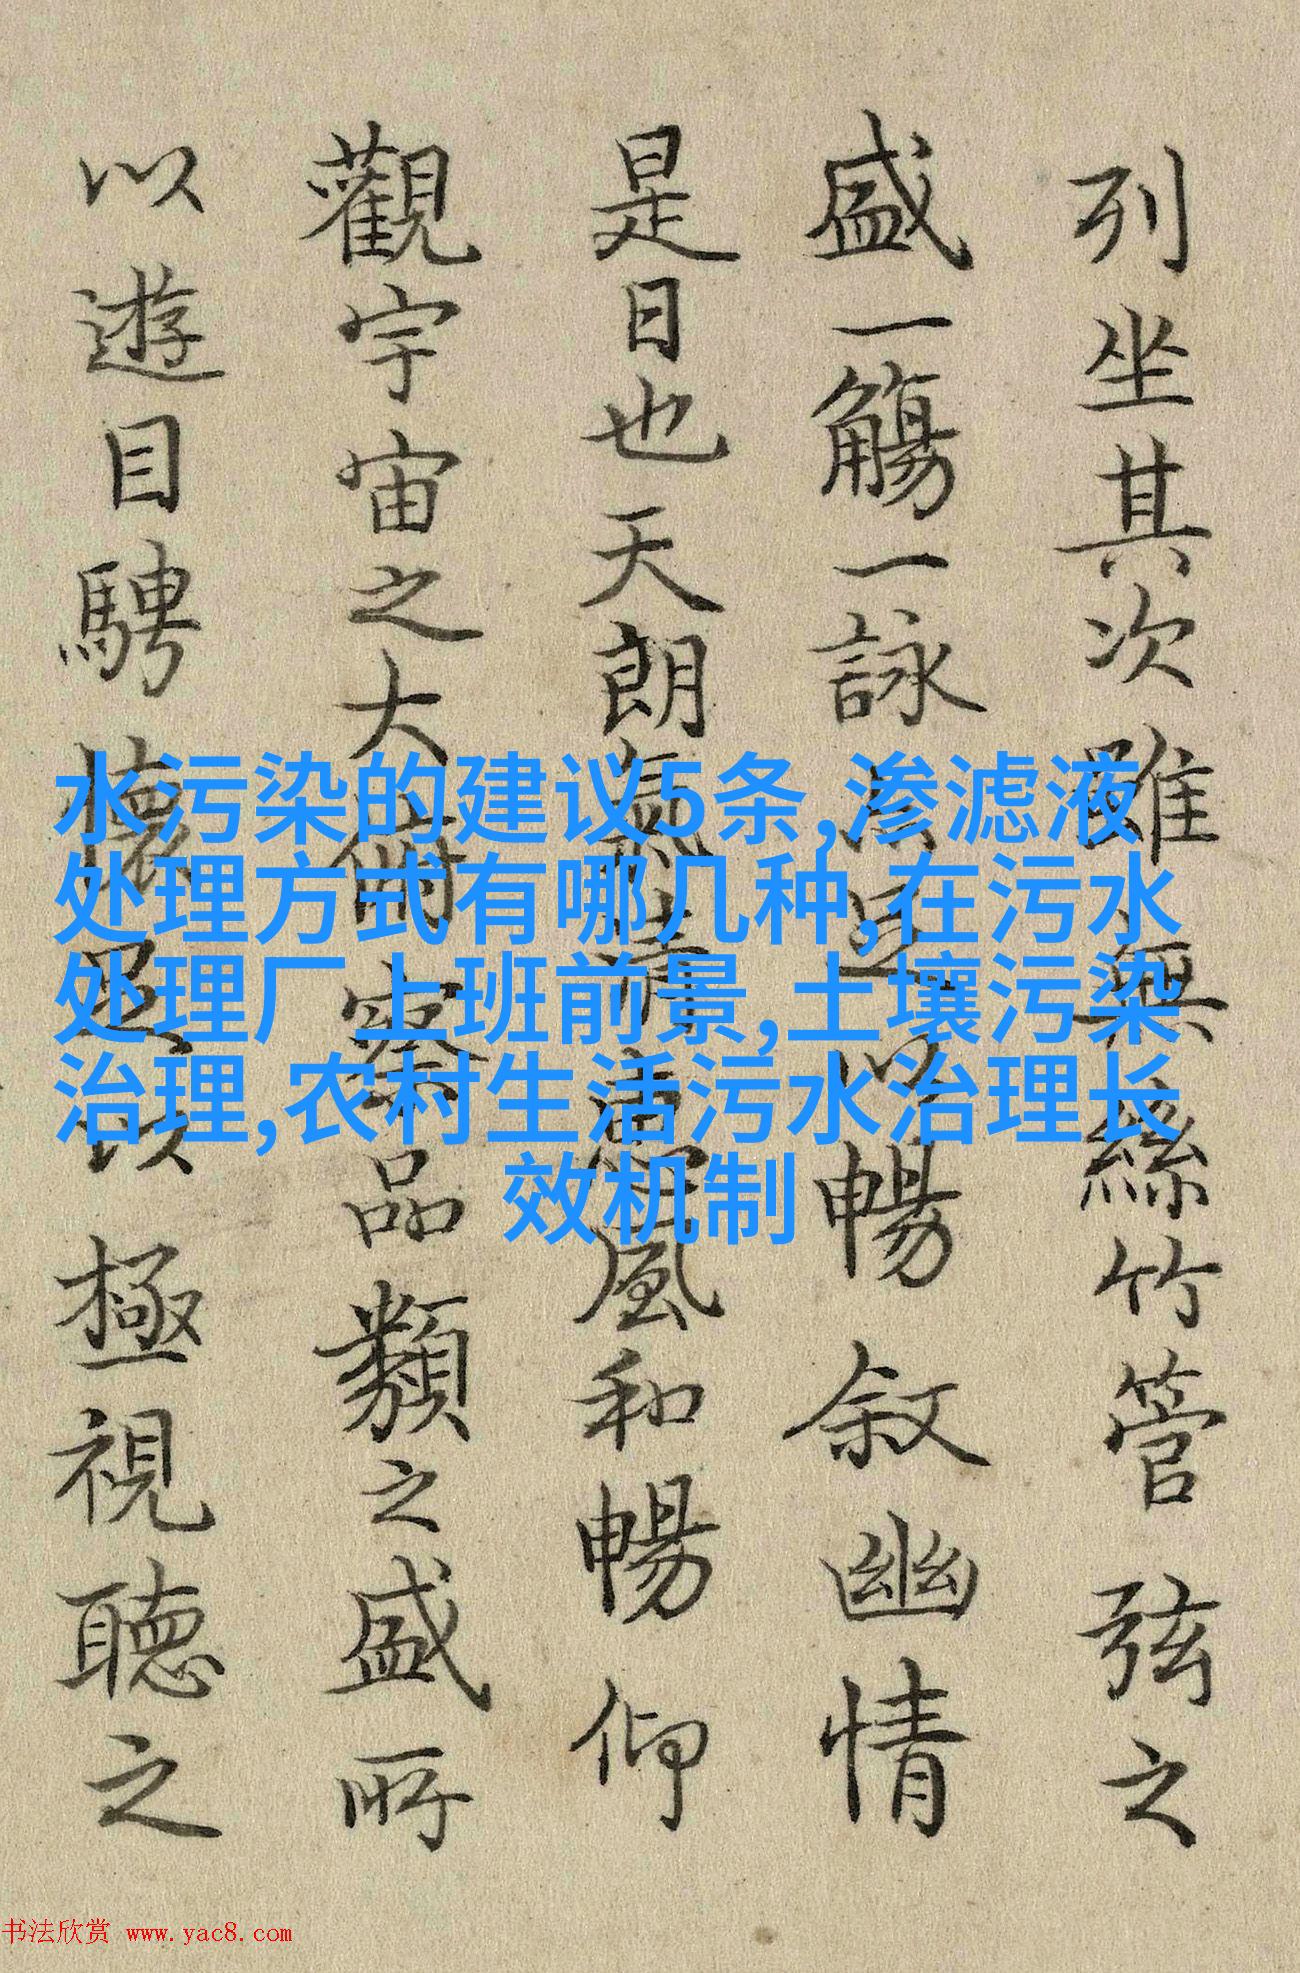 列坐其次雖無絲竹管弦之
盛一觴一詠亦足以暢叙幽情
是日也天朗氣清惠風和暢仰
觀宇宙之大俯察品類之盛所
以遊目騁懷足以極視聽之
水污染的建议5条,渗滤液
处理方式有哪几种,在污水
处理厂上班前景,土壤污染
治理,农村生活污水治理长
效机制
书法欣赏 www.yac8.com